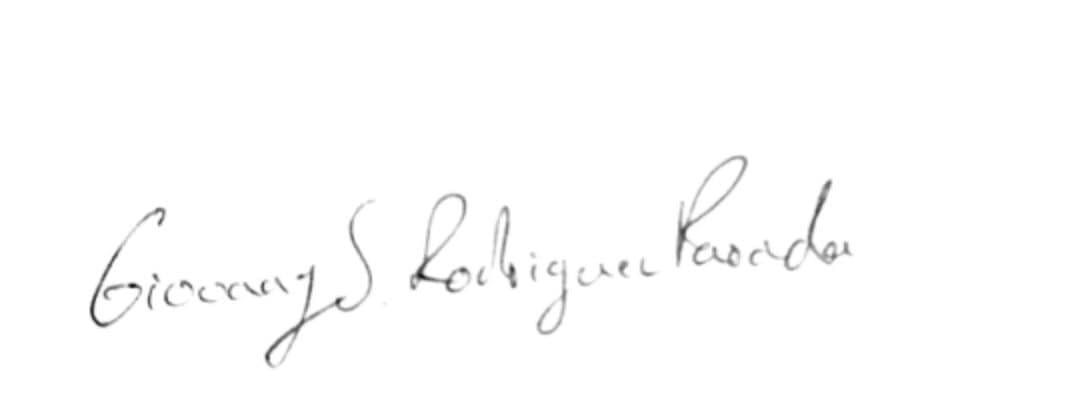 Giovanny S. Rodriguez Parada